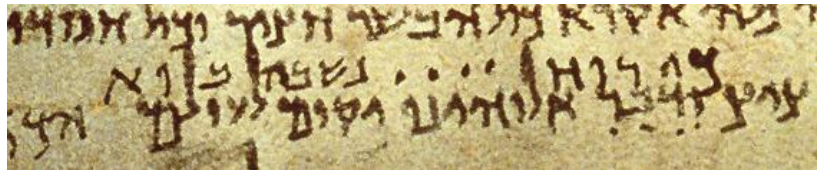 מה אקרא כול הבשר חציר וכול חסדיו
כי רוח .... נשבה בוא
ציץ ודבר אלוהינו יקום לעולם